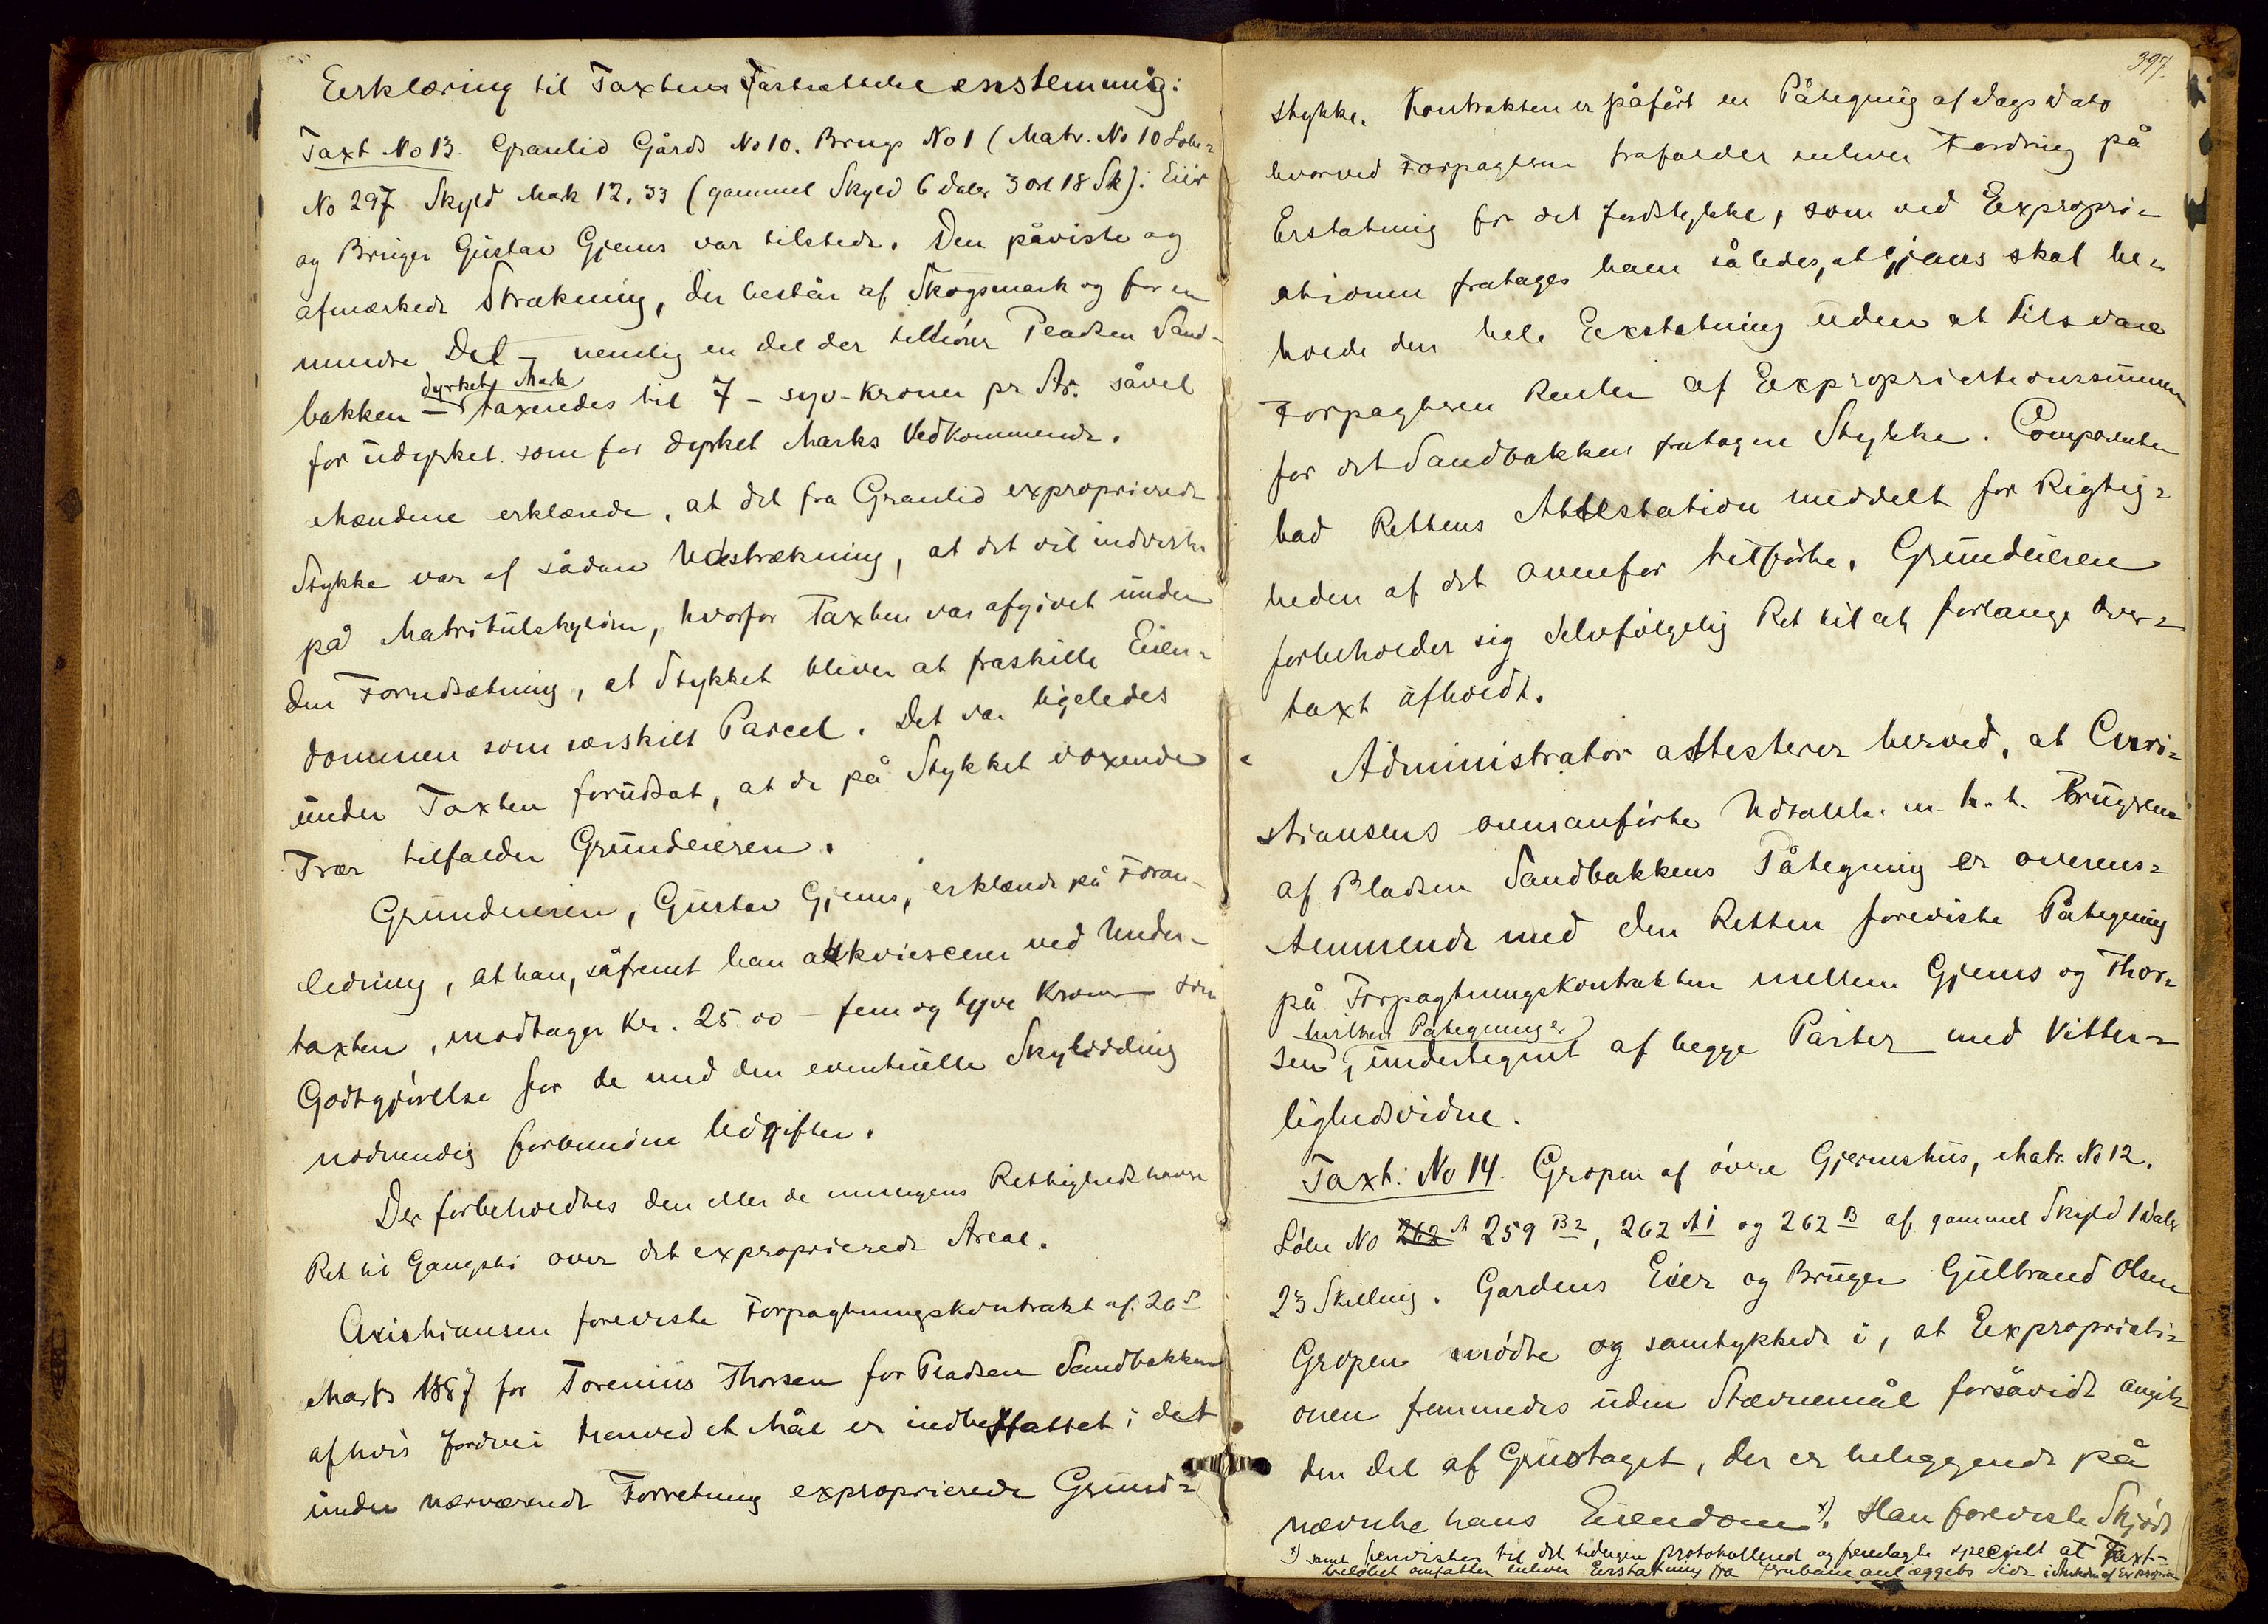 Erklæring til Taxtens Fastsættelse enstemmig:
Taxt No 13. Granlid Gårds No 10. Brugs No 1 (Matr. No 10 Løbe=
No 297 Skyld Mark 12,33 (gammel Skyld 6 daler 3 ort 18 Sk). Eiir
og Bruger Gustav Gjems var tilstede. Den påviste og
afmærkede Strækning, der består af Skogsmark og for en
mindre Del – nemlig en del der tilhører Pladsen Sand-
dyrket Mark
bakken – taxeredes til 7 – syv – Kroner pr Ar. såvel
for udyrket som for dyrket Marks Vedkommende.
Mændene erklærede, at det fra Granlid exproprierede
Stykke var af sådan Udstrækning, at det vil indvirke
på Matrikulskylden, hvorfor Taxten var afgivet under
den Forudsætning, at Stykket bliver at fraskille Eien=
dommen som særskilt Parcel. Det var ligeledes
under Taxten forudsat, at de på Stykket voxende
Trær tilfalder Grundeieren.
Grundeieren, Gustav Gjems, erklærede på Foran-
ledning, at han, såfremt han akkviescerer ved Under-
taxten, modtager Kr. 25.00 – fem og tyve Kroner som
Godtgjørelse for de med den eventuelle Skylddeling
nødvendig forbundne Udgifter.
Der forbeholdtes den eller de mulige Rettighedshavere
Ret til Gangsti over det exproprierede Areal.
Christiansen foreviste Forpagtningskontrakt af 26de
Marts 1887 for Torenius Thorsen for Pladsen Sandbakken
af hvis Jordvei henved et Mål er indbefattet i det
under nærværende Forretning exproprierede Grund=
397.
stykke. Kontrakten er påført en Påtegning af dags dato
hvorved Forpagteren frafalder enhver Fordring på
Erstatning for det Jordstykke, som ved Expropri=
ationen fratages ham således, at Gjems skal be=
holde den hele Erstatning uden at tilsvare
Forpagteren Renter af Expropriationssummen
for det Sandbakken fratagne Stykke. Comparenten
bad Rettens Attestation meddelt for Rigtig=
heden af det ovenfor tilførte. Grundeieren
forbeholder sig selvfølgelig Ret til at forlange Over=
taxt afholdt.
Administrator attesterer herved, at Chri=
stiansens ovenanførte Udtalelse m. h. t. Brugeren
af Pladsen Sandbakkens Påtegning er overens=
stemmende med den Retten foreviste Påtegning
på Forpagtningskontrakten mellem Gjems og Thor=
hvilken Påtegning er
sen, undertegnet af begge Parter med Vitter=
lighedsvidne.
Taxt: No 14. Gropen af øvre Gjemshus, Matr. No 12.
Løbe No 262 A 259 B2, 262 A1 og 262 B af gammel Skyld 1 daler
23 Skilling. Gardens Eier og Bruger Gulbrand Olsen
Gropen mødte og samtykkede i, at Expropriati=
onen fremmedes uden Stævnemål forsåvidt angik
den Del af Grustaget, der er beliggende på
nævnte hans Eiendom x). Han foreviste Skjøde
x) samt henviste til det tidligere protokollerede og fremlagte specielt at Taxt-
beløbet omfatter enhver Erstatning fra Jernbaneanlæggets Side i Anledn. af Expropria